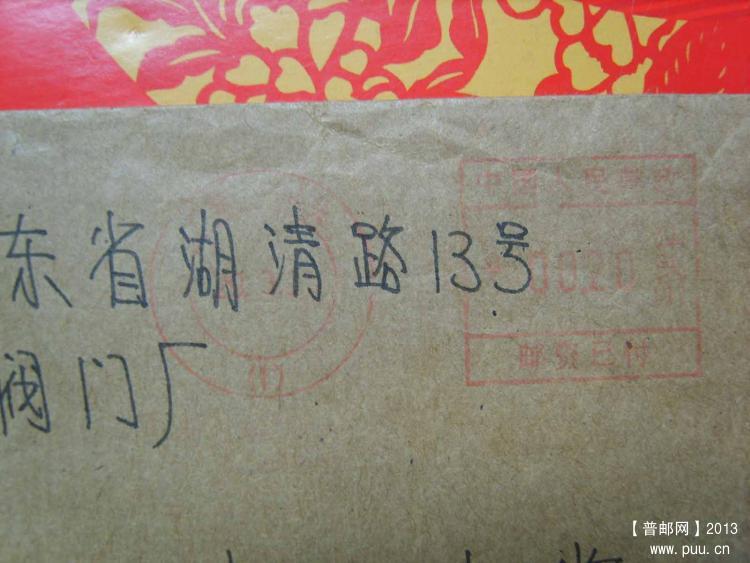 东省湖清路13号
阀门厂
中国人民邮政
0020
邮资已付
(1)
【普邮网】2013
www.puu.cn